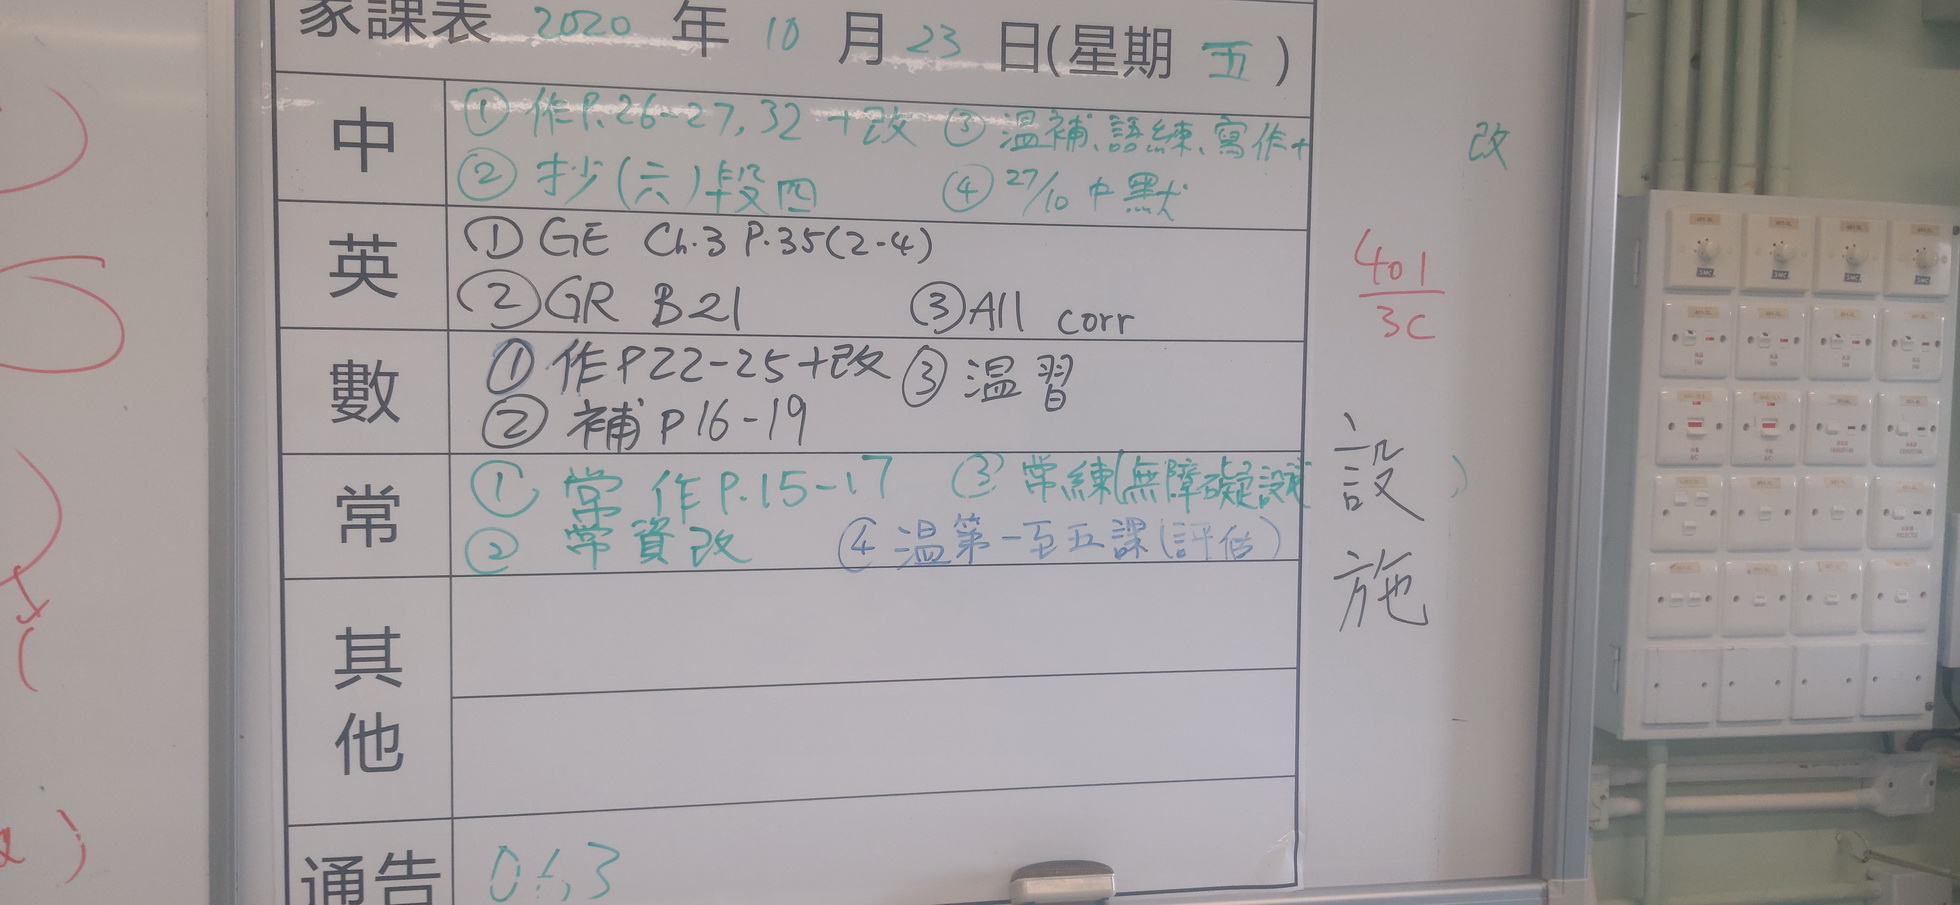 家課表 2020 年 10 月 23 日(星期 五)
中
① 作P.26-27,32 +改 ③ 温補、語練、寫作+ 改
② 抄(六)段四 ④ 27/10 中默
英
① GE Ch.3 P.35(2-4)
② GR B21 ③ All corr
401
3C
數
① 作P22-25+改 ③ 温習
② 補P16-19
常
① 常作P.15-17 ③ 常練(無障礙設施)
② 常資改 ④ 温第一至五課(評估)
設施
其他
通告